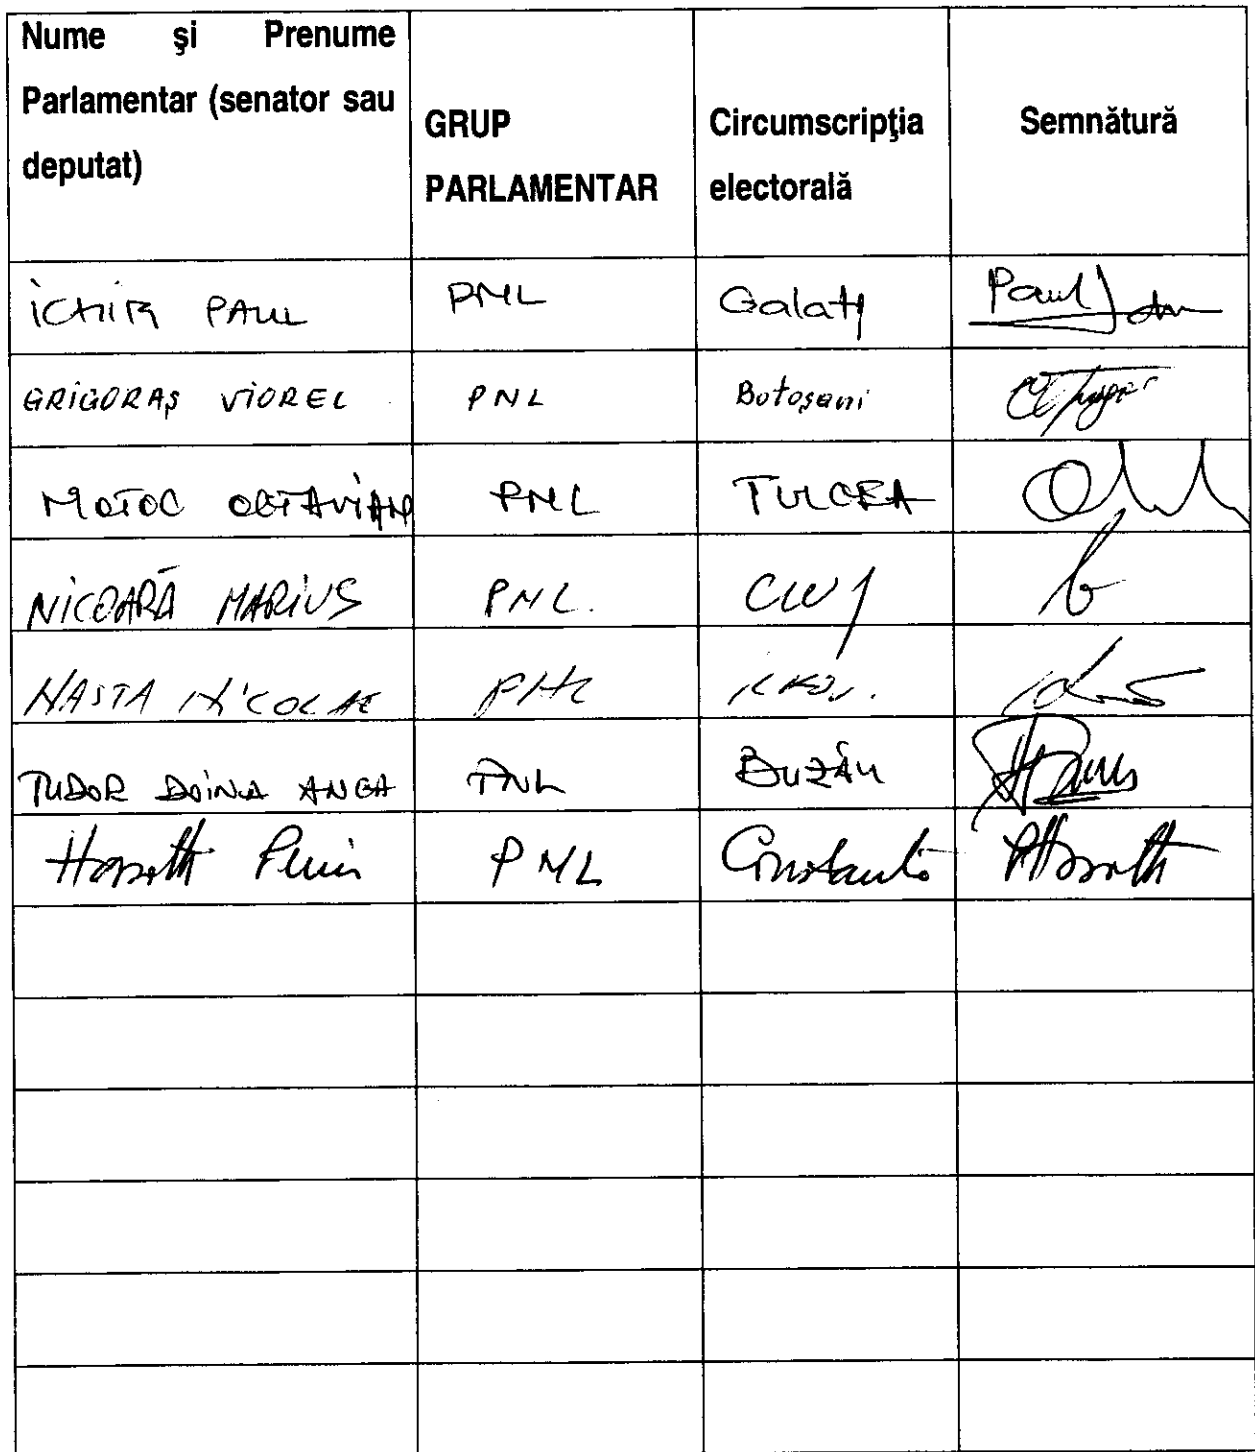 Nume şi Prenume
Parlamentar (senator sau
deputat)
GRUP
PARLAMENTAR
Circumscripţia
electorală
Semnătură
PAUL PNL Galaţi Paul
GRIGORAŞ VIOREL PNL Botoşani
MOTOC OCTAVIAN PNL TULCEA
NICOARĂ MARIUS PNL. CLUJ
NASTA NICOLAE PNL
TUDOR DOINA ANCA PNL BUZĂU
PNL Constanta